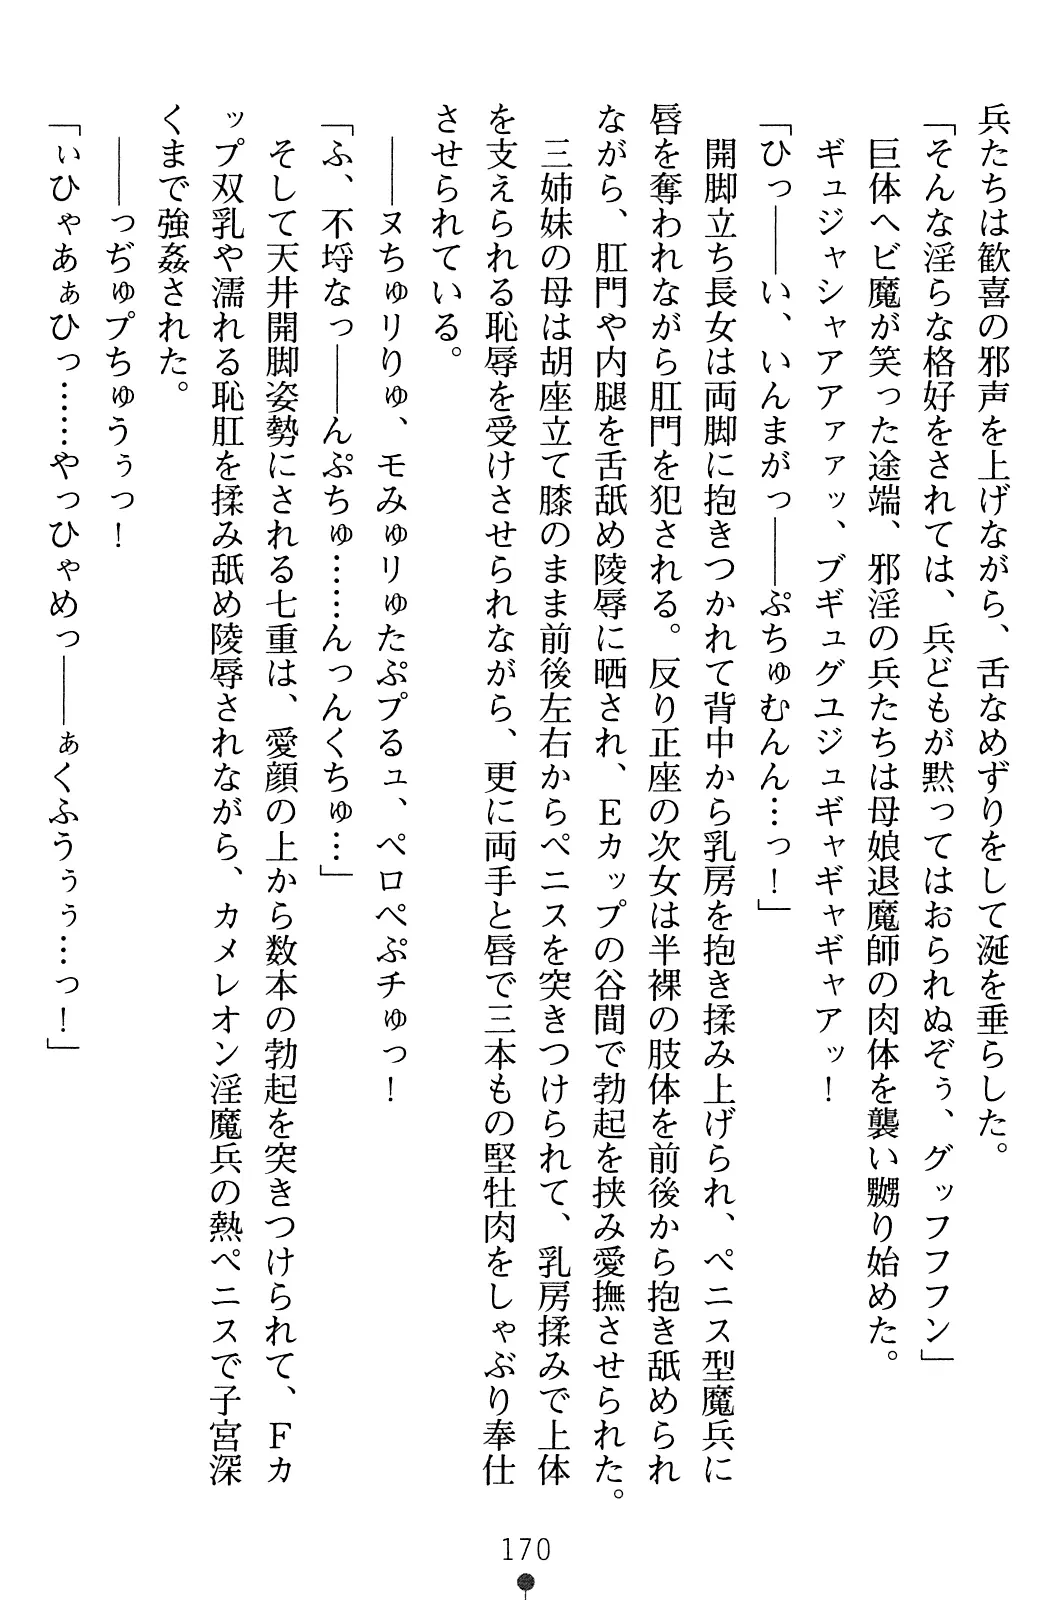 兵たちは歓喜の邪声を上げながら、舌なめずりをして涎を垂らした。
「そんな淫らな格好をされては、兵どもが黙ってはおられぬぞぅ、グッフフフン」
巨体ヘビ魔が笑った途端、邪淫の兵たちは母娘退魔師の肉体を襲い嬲り始めた。
ギュジャシャアアァァッ、ブギュグユジュギャギャギャアッ！
「ひっ――い、いんまがっ――ぷちゅむんん…っ！」
開脚立ち長女は両脚に抱きつかれて背中から乳房を抱き揉み上げられ、ペニス型魔兵に
唇を奪われながら肛門を犯される。反り正座の次女は半裸の肢体を前後から抱き舐められ
ながら、肛門や内腿を舌舐め陵辱に晒され、Ｅカップの谷間で勃起を挟み愛撫させられた。
三姉妹の母は胡座立て膝のまま前後左右からペニスを突きつけられて、乳房揉みで上体
を支えられる恥辱を受けさせられながら、更に両手と唇で三本もの堅牡肉をしゃぶり奉仕
させられている。
――ヌちゅリりゅ、モみゅリゅたぷプるュ、ペロペぷチゅっ！
「ふ、不埒なっ――んぷちゅ……んっんくちゅ…」
そして天井開脚姿勢にされる七重は、愛顔の上から数本の勃起を突きつけられて、Ｆカ
ップ双乳や濡れる恥肛を揉み舐め陵辱されながら、カメレオン淫魔兵の熱ペニスで子宮深
くまで強姦された。
――っぢゅプちゅうぅっ！
「ぃひゃあぁひっ……やっひゃめっ――ぁくふうぅぅ…っ！」
170